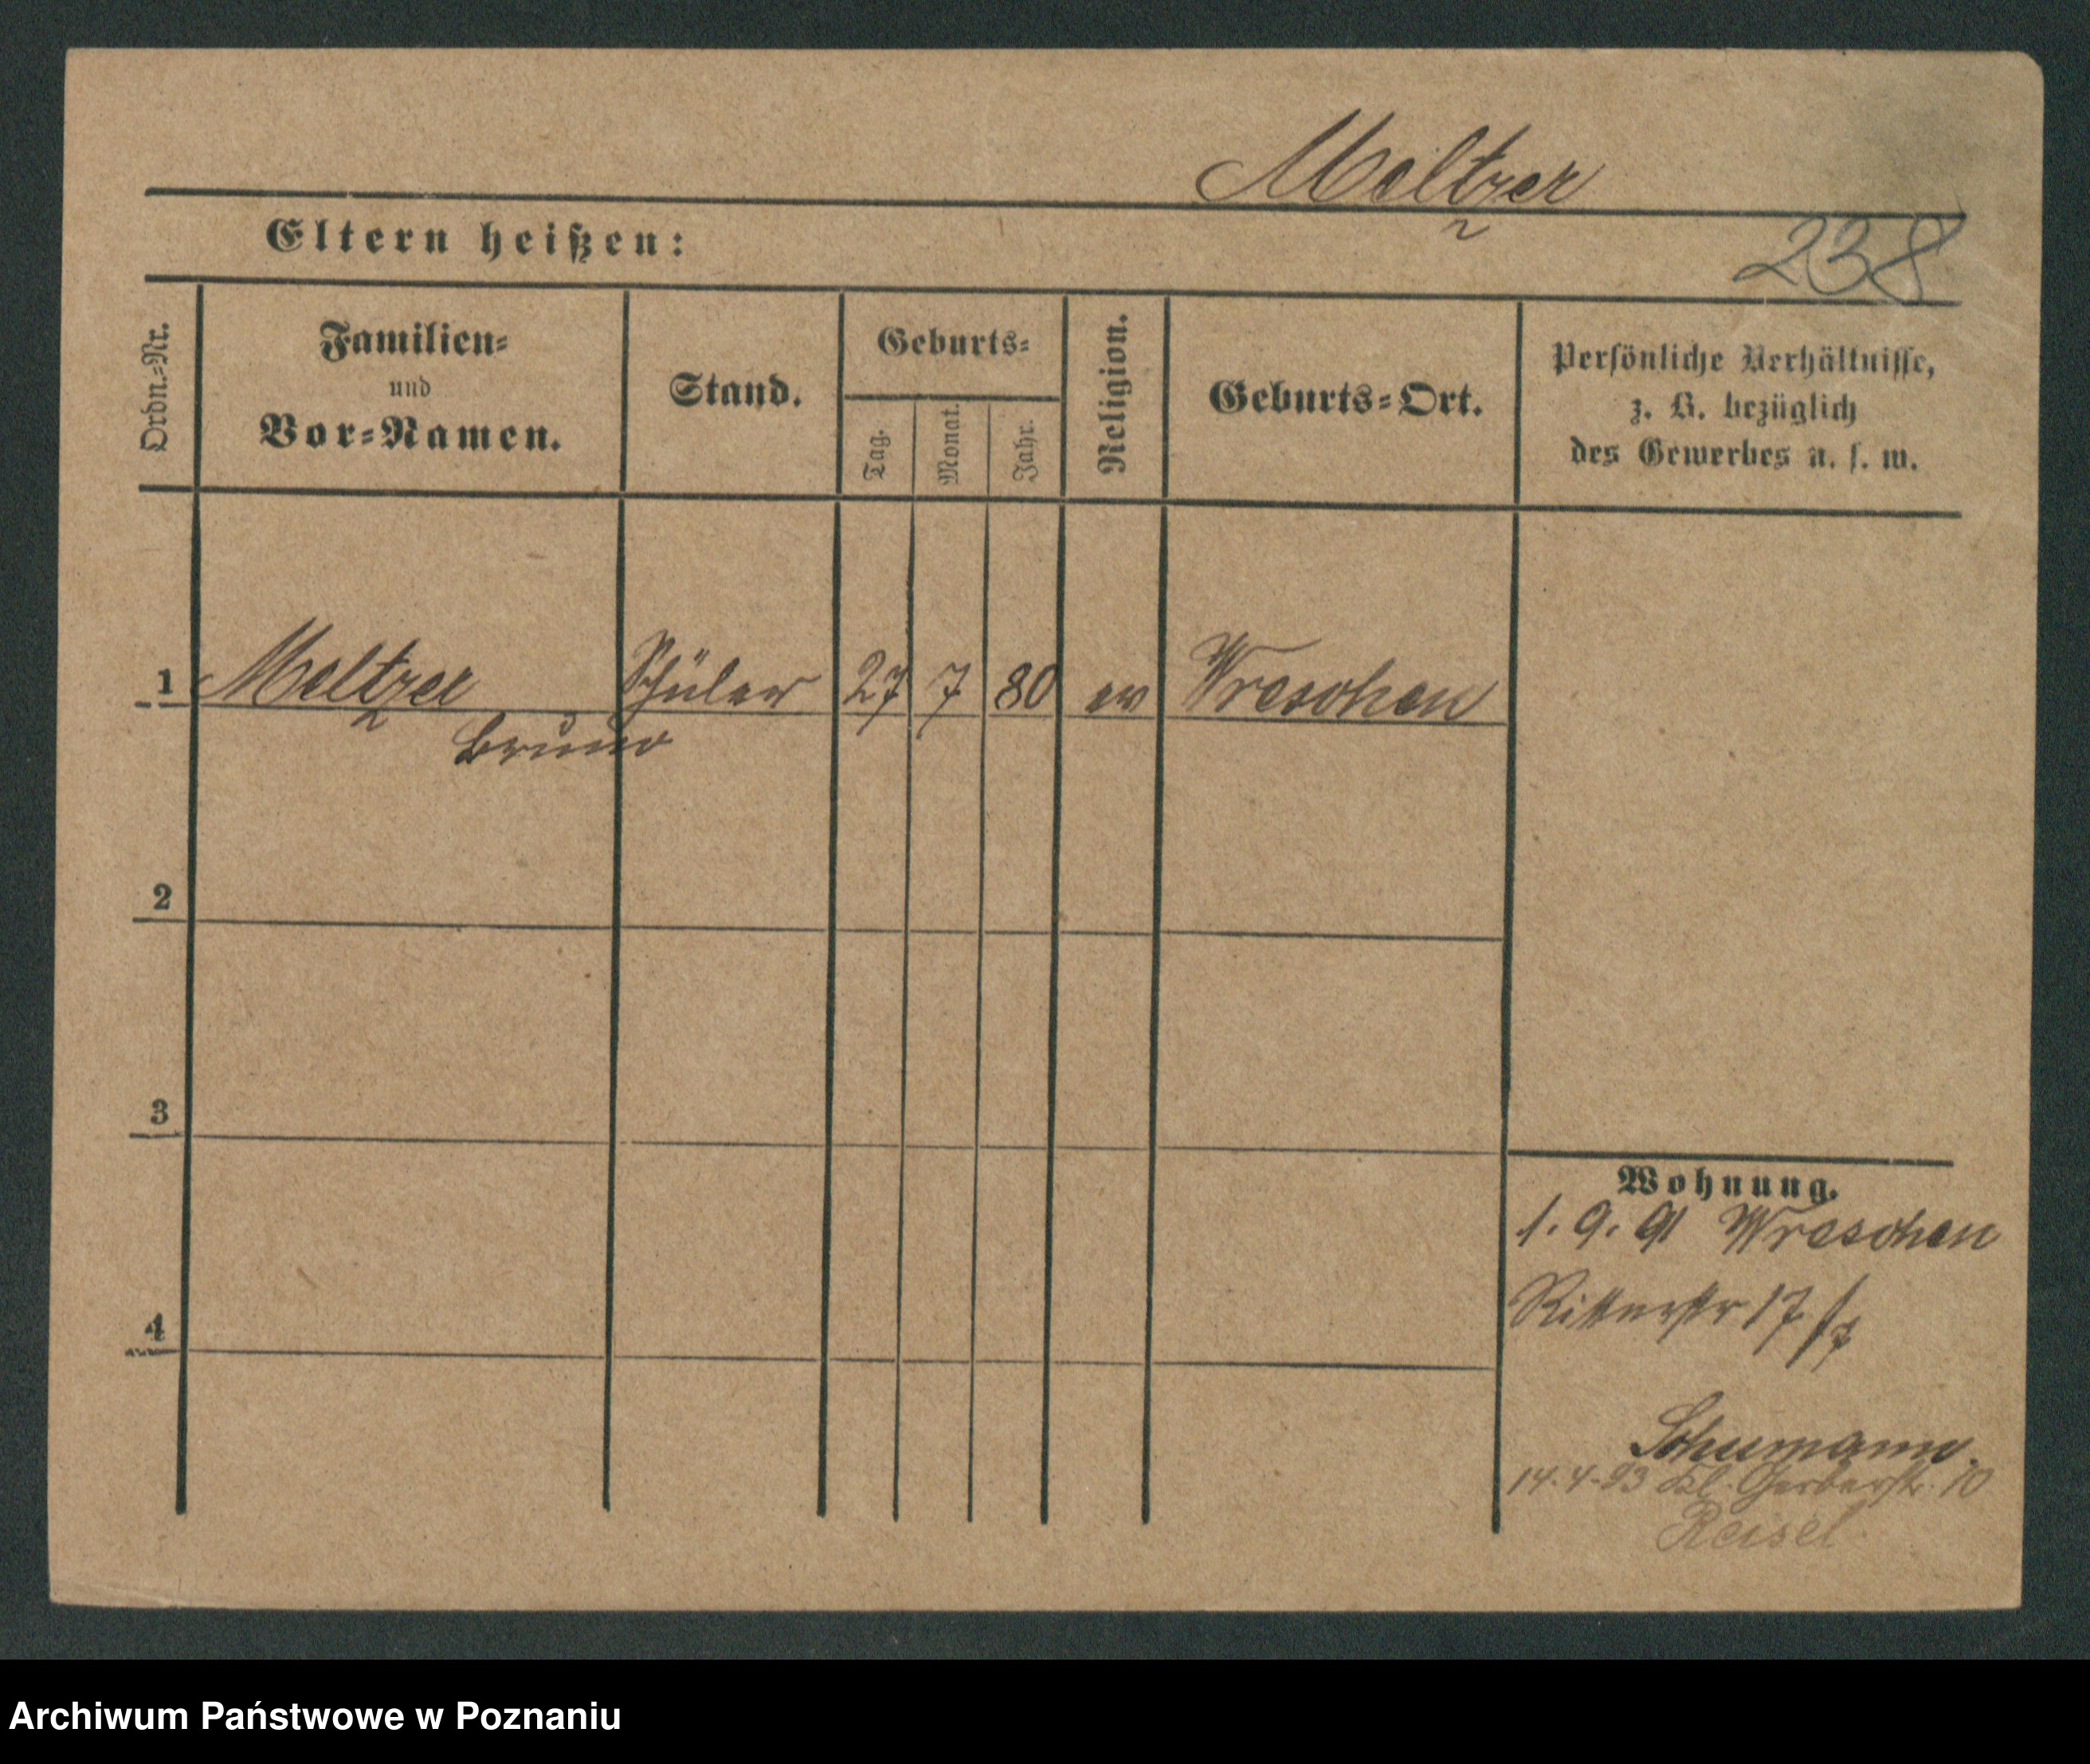 Meltzer
Eltern heißen:
238
Ordn.-Nr.
Familien-
und
Vor-Namen.
Stand.
Geburts-
Tag.
Monat.
Jahr.
Religion.
Geburts-Ort.
Persönliche Verhältnisse,
z. B. bezüglich
des Gewerbes u. s. w.
1 Meltzer Schüler 27 7 80 ev Wreschen
Bruno
2
3
4
Wohnung.
1. 9. 91 Wreschen
Ritterstr 17
Schumann.
14. 4. 93 Kl. Gerberstr. 10
Reisel
Archiwum Państwowe w Poznaniu